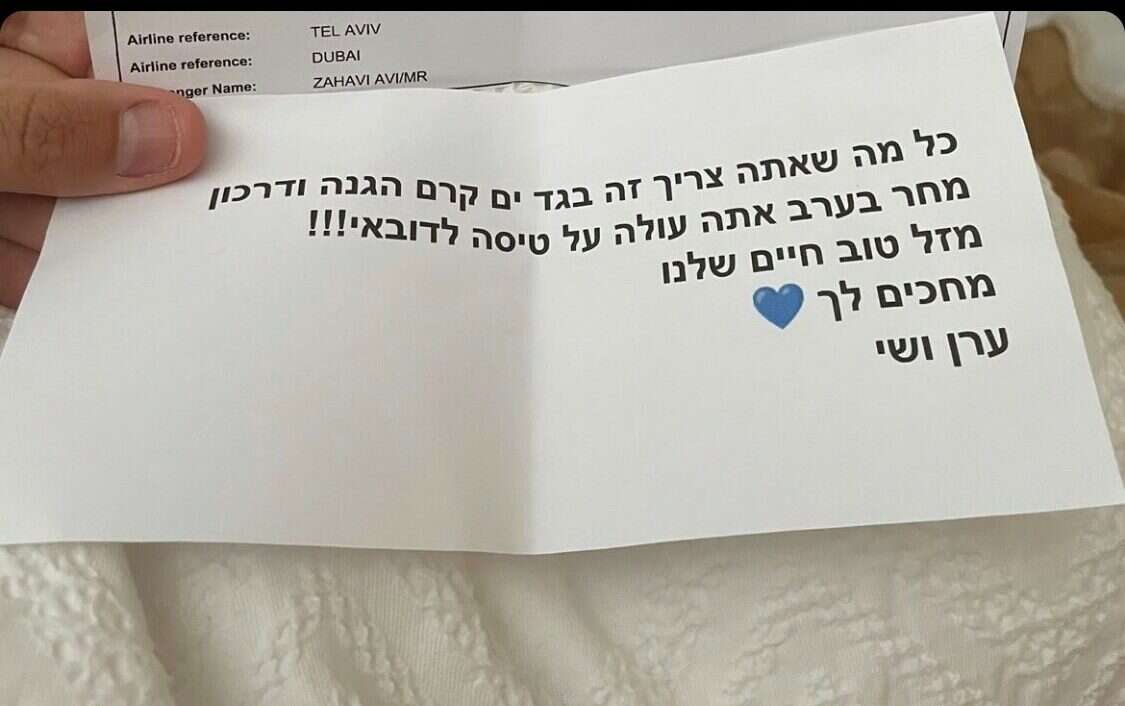 Airline reference: TEL AVIV
Airline reference: DUBAI
nger Name: ZAHAVI AVI/MR
כל מה שאתה צריך זה בגד ים קרם הגנה ודרכון
מחר בערב אתה עולה על טיסה לדובאי!!!
מזל טוב חיים שלנו
מחכים לך 💙
ערן ושי